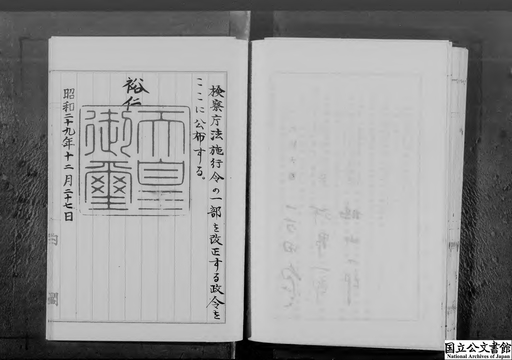 検察庁法施行令の一部を改正する政令を
ここに公布する。
裕仁
天皇
御璽
昭和二十九年十二月二十七日
国立公文書館
National Archives of Japan